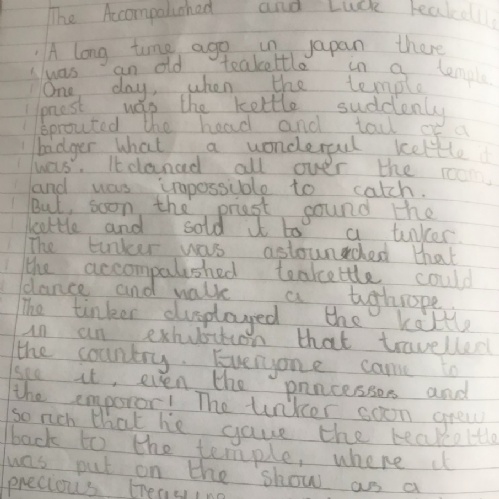 The Accompalished and Luck teakettle
A long time ago in japan there
was an old teakettle in a temple
One day, when the temple
priest was the kettle suddenly
sprouted the head and tail of a
badger what a wonderful kettle it
was. It danad all over the room
and was impossible to catch.
But, soon the priest gound the
kettle and sold it to a tinker.
The tinker was astounded that
the accompalished teakettle could
dance and walk a tighrope.
The tinker displayed the kettle
in an exhibition that travelled
the country. Everyone came to
see it, even the princesses and
the emporor! The tinker soon grew
so rich that he gave the teakettle
back to the temple, where it
was put on the show as a
precious treasure